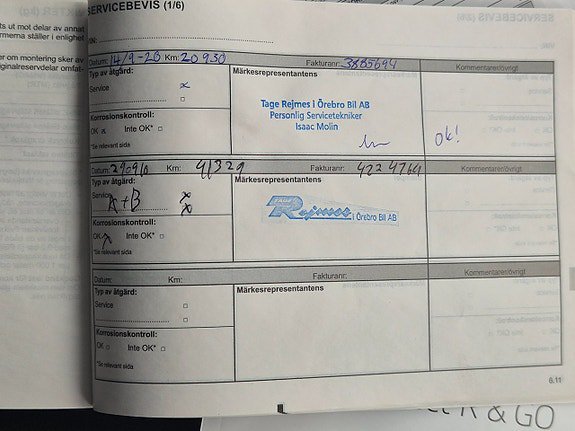 SERVICEBEVIS (1/6)
VIN:
Datum: 14/9-20 Km: 20930 Fakturanr: 3885694 Kommentarer/övrigt
Typ av åtgärd:
Service x
Märkesrepresentantens
Tage Rejmes i Örebro Bil AB
Personlig Servicetekniker
Isaac Molin
Ok!
Korrosionskontroll:
OK x Inte OK*
*Se relevant sida
Datum: Km: 41329 Fakturanr: Kommentarer/övrigt
Typ av åtgärd:
Service x
A+B x
Märkesrepresentantens
Rejmes i Örebro Bil AB
Korrosionskontroll:
OK Inte OK*
*Se relevant sida
Datum: Km: Fakturanr: Kommentarer/övrigt
Typ av åtgärd:
Service
Märkesrepresentantens
Korrosionskontroll:
OK Inte OK*
*Se relevant sida
6.11
& GO